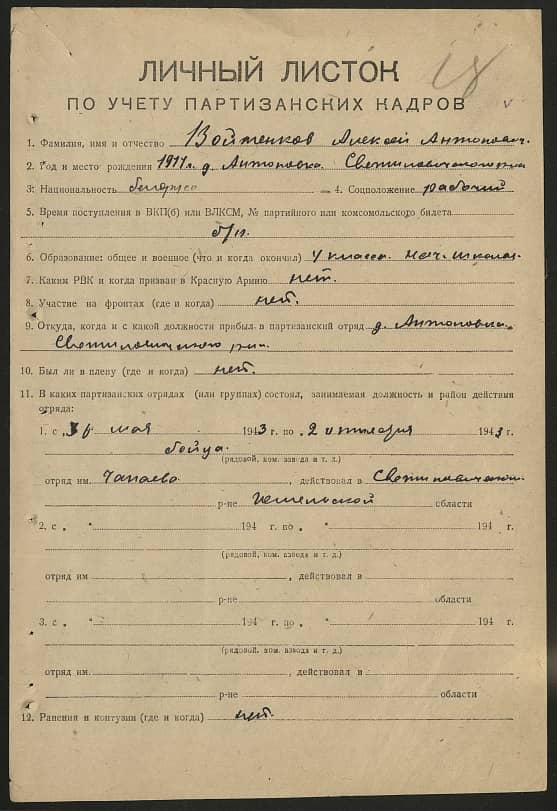 18
ЛИЧНЫЙ ЛИСТОК
ПО УЧЕТУ ПАРТИЗАНСКИХ КАДРОВ
1. Фамилия, имя и отчество Войтенков Алексей Антонович.
2. Год и место рождения 1911 г. д. Антоновка Светиловичского р-на
3. Национальность белорус 4. Соцположение рабочий
5. Время поступления в ВКП(б) или ВЛКСМ, № партийного или комсомольского билета
б/п.
6. Образование: общее и военное (что и когда окончил) 4 класса нач. школы.
7. Каким РВК и когда призван в Красную Армию нет.
8. Участие на фронтах (где и когда) нет.
9. Откуда, когда и с какой должности прибыл в партизанский отряд д. Антоновка
Светиловичского р-на.
10. Был ли в плену (где и когда) нет.
11. В каких партизанских отрядах (или группах) состоял, занимаемая должность и район действия
отряда:
1. с „ мая 1943 г. по „2 октября 1943 г.
бойца.
(рядовой, ком. взвода и т. д.)
отряд им. Чапаева, действовал в Светиловичском
р-не Гомельской области
2. с „ " 194 г. по „ " 194 г.
(рядовой, ком. взвода и т. д.)
отряд им. , действовал в
р-не области
3. с „ " 194 г. по „ " 194 г.
(рядовой, ком. взвода и т. д.)
отряд им. , действовал в
р-не области
12. Ранения и контузии (где и когда) нет.